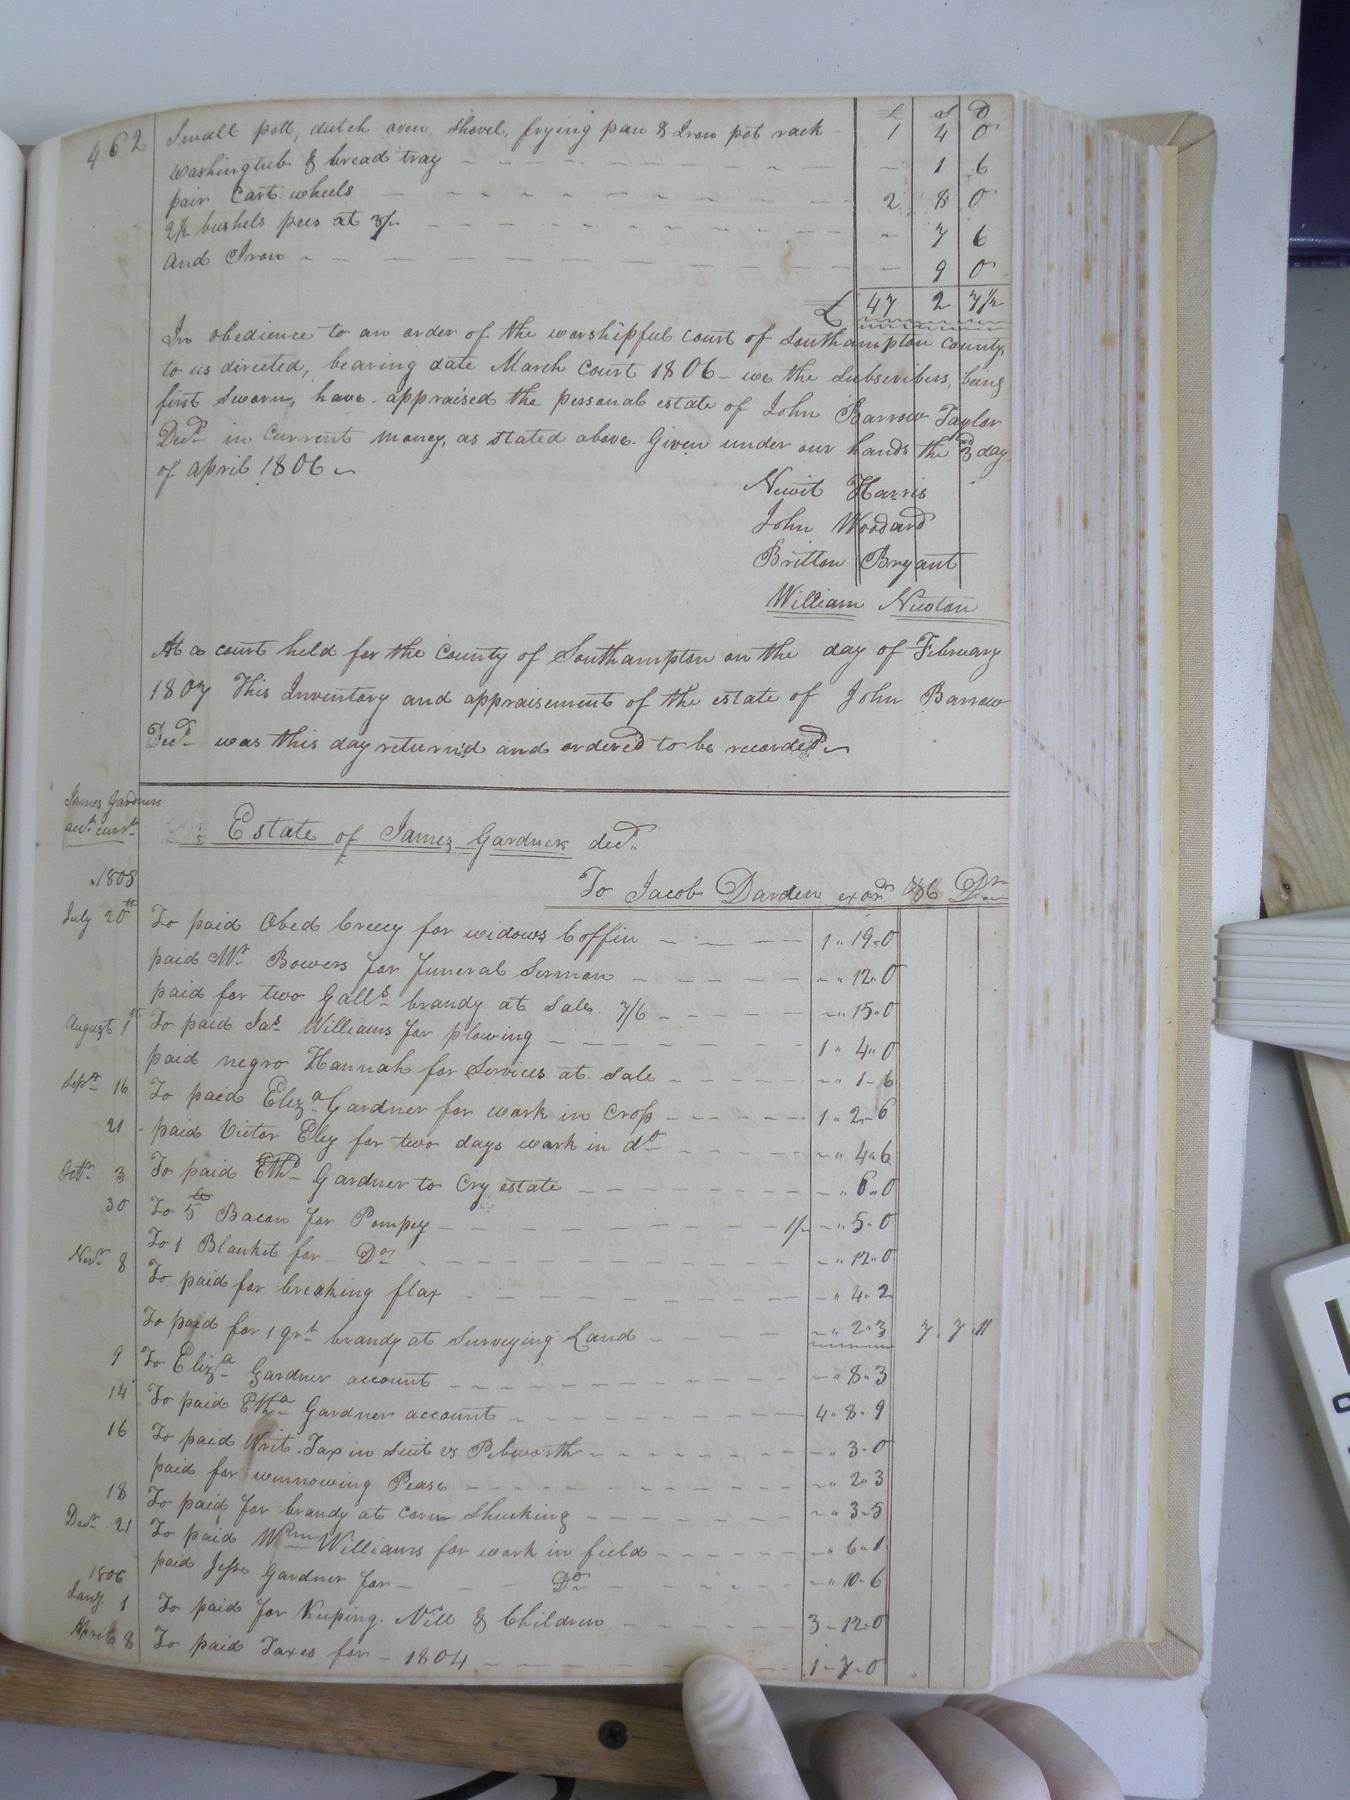 462
£ S D
Small pott, dutch oven, shovel, frying pan & Iron pot rack 1 4 0
washingtub & bread tray - 1 6
pair Cart wheels 2 8 0
2½ bushels pees at 3/- " 7 6
and Iron - 9 0
£ 47 2 7½
In obedience to an order of the worshipful court of Southampton County,
to us directed, bearing date March Court 1806 - we the subscribers, being
first sworn, have appraised the personal estate of John Barrow Taylor
Decd. in Current money, as stated above. Given under our hands the 3 day
of april 1806
Newit Harris
John Woodard
Britton Bryant
William Newton
At a court held for the County of Southampton on the day of February
1807 This Inventory and appraisement of the estate of John Barrow
Decd. was this day return'd and ordered to be recorded
James Gardners
acct. currt.
Estate of James Gardner decd.
1805 To Jacob Darden exor. Dr
July 20th To paid Obed Creecy for widows Coffin 1 " 19 " 0
paid Mr. Bowers for funeral Sermon - " 12 " 0
paid for two Galls. brandy at sale 7/6 - " 15 " 0
August 1st To paid Jas. Williams for plowing 1 " 4 " 0
paid negro Hannah for Services at sale - " 1 - 6
Sepr. 16 To paid Eliza Gardner for work in Crop 1 " 2 - 6
21 paid Victor Eley for two days work in do - " 4 " 6
Octr. 3 To paid Ethd. Gardner to Cry estate - " 6 " 0
30 To 5 lb Bacon for Pompey 1/- - " 5 - 0
To 1 Blanket for Do - " 12 " 0
Novr. 8 To paid for breaking flax - " 4 - 2
To paid for 1 qrt. brandy at Surveying Land - " 2 " 3 7 . 7 . 11
9 To Eliza Gardner account - " 8 - 3
14 To paid Etha Gardner account 4 - 8 - 9
16 To paid Writ-Tax in suit vs Pebworth - " 3 - 0
paid for winnowing Pease - " 2 " 3
18 To paid for brandy at corn Shucking - " 3 - 5
Decr. 21 To paid Wm. Williams for work in field - " 6 - 1
paid Jesse Gardner for Do - " 10 - 6
1806
Jany. 1 To paid for Keeping Nell & Children 3 - 12 - 0
April 8 To paid Taxes for - 1804 1 - 7 - 0